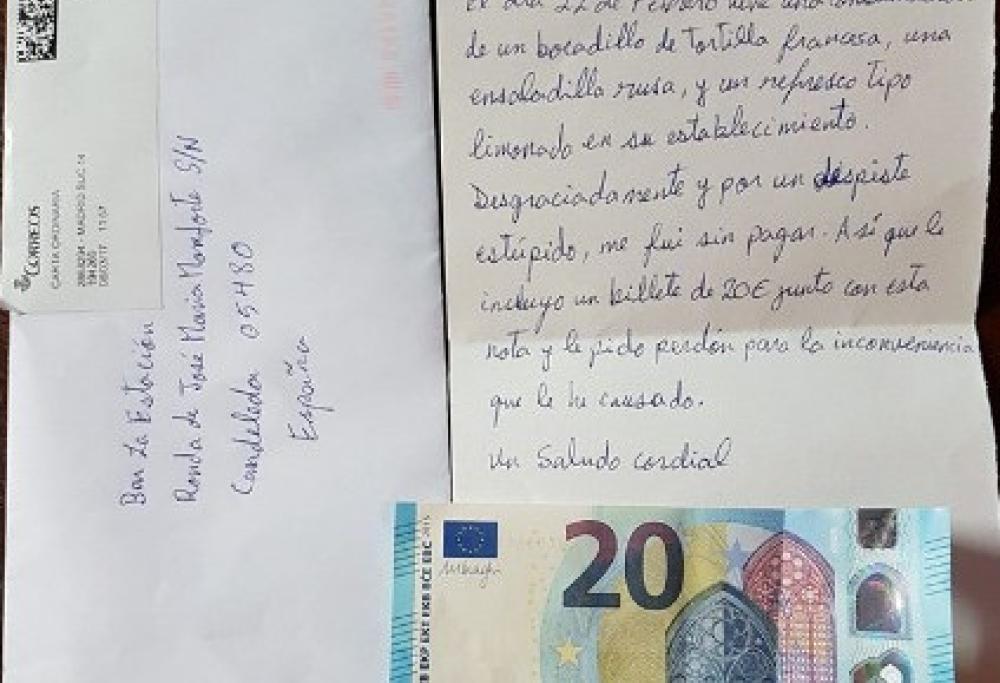 CORREOS
CARTA ORDINARIA
Bar La Estación
Ronda de José María Monforte S/N
Candeleda 05480
España
El día 22 de Febrero tuve una
de un bocadillo de Tortilla francesa, una
ensaladilla rusa, y un refresco tipo
limonada en su establecimiento.
Desgraciadamente y por un despiste
estúpido, me fui sin pagar. Así que le
incluyo un billete de 20€ junto con esta
nota y le pido perdón para la inconveniencia
que le he causado.
Un Saludo cordial
20